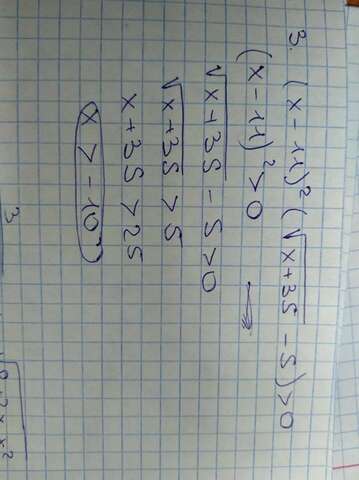 3. (x-11)² (√x+35 - 5) > 0
(x-11)² > 0
√x+35 - 5 > 0
√x+35 > 5
x + 35 > 25
x > -10
3